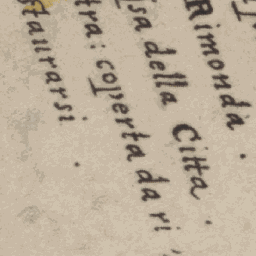 Rimonda.
sa della Città.
tra: coperta da ri,
staurarsi.